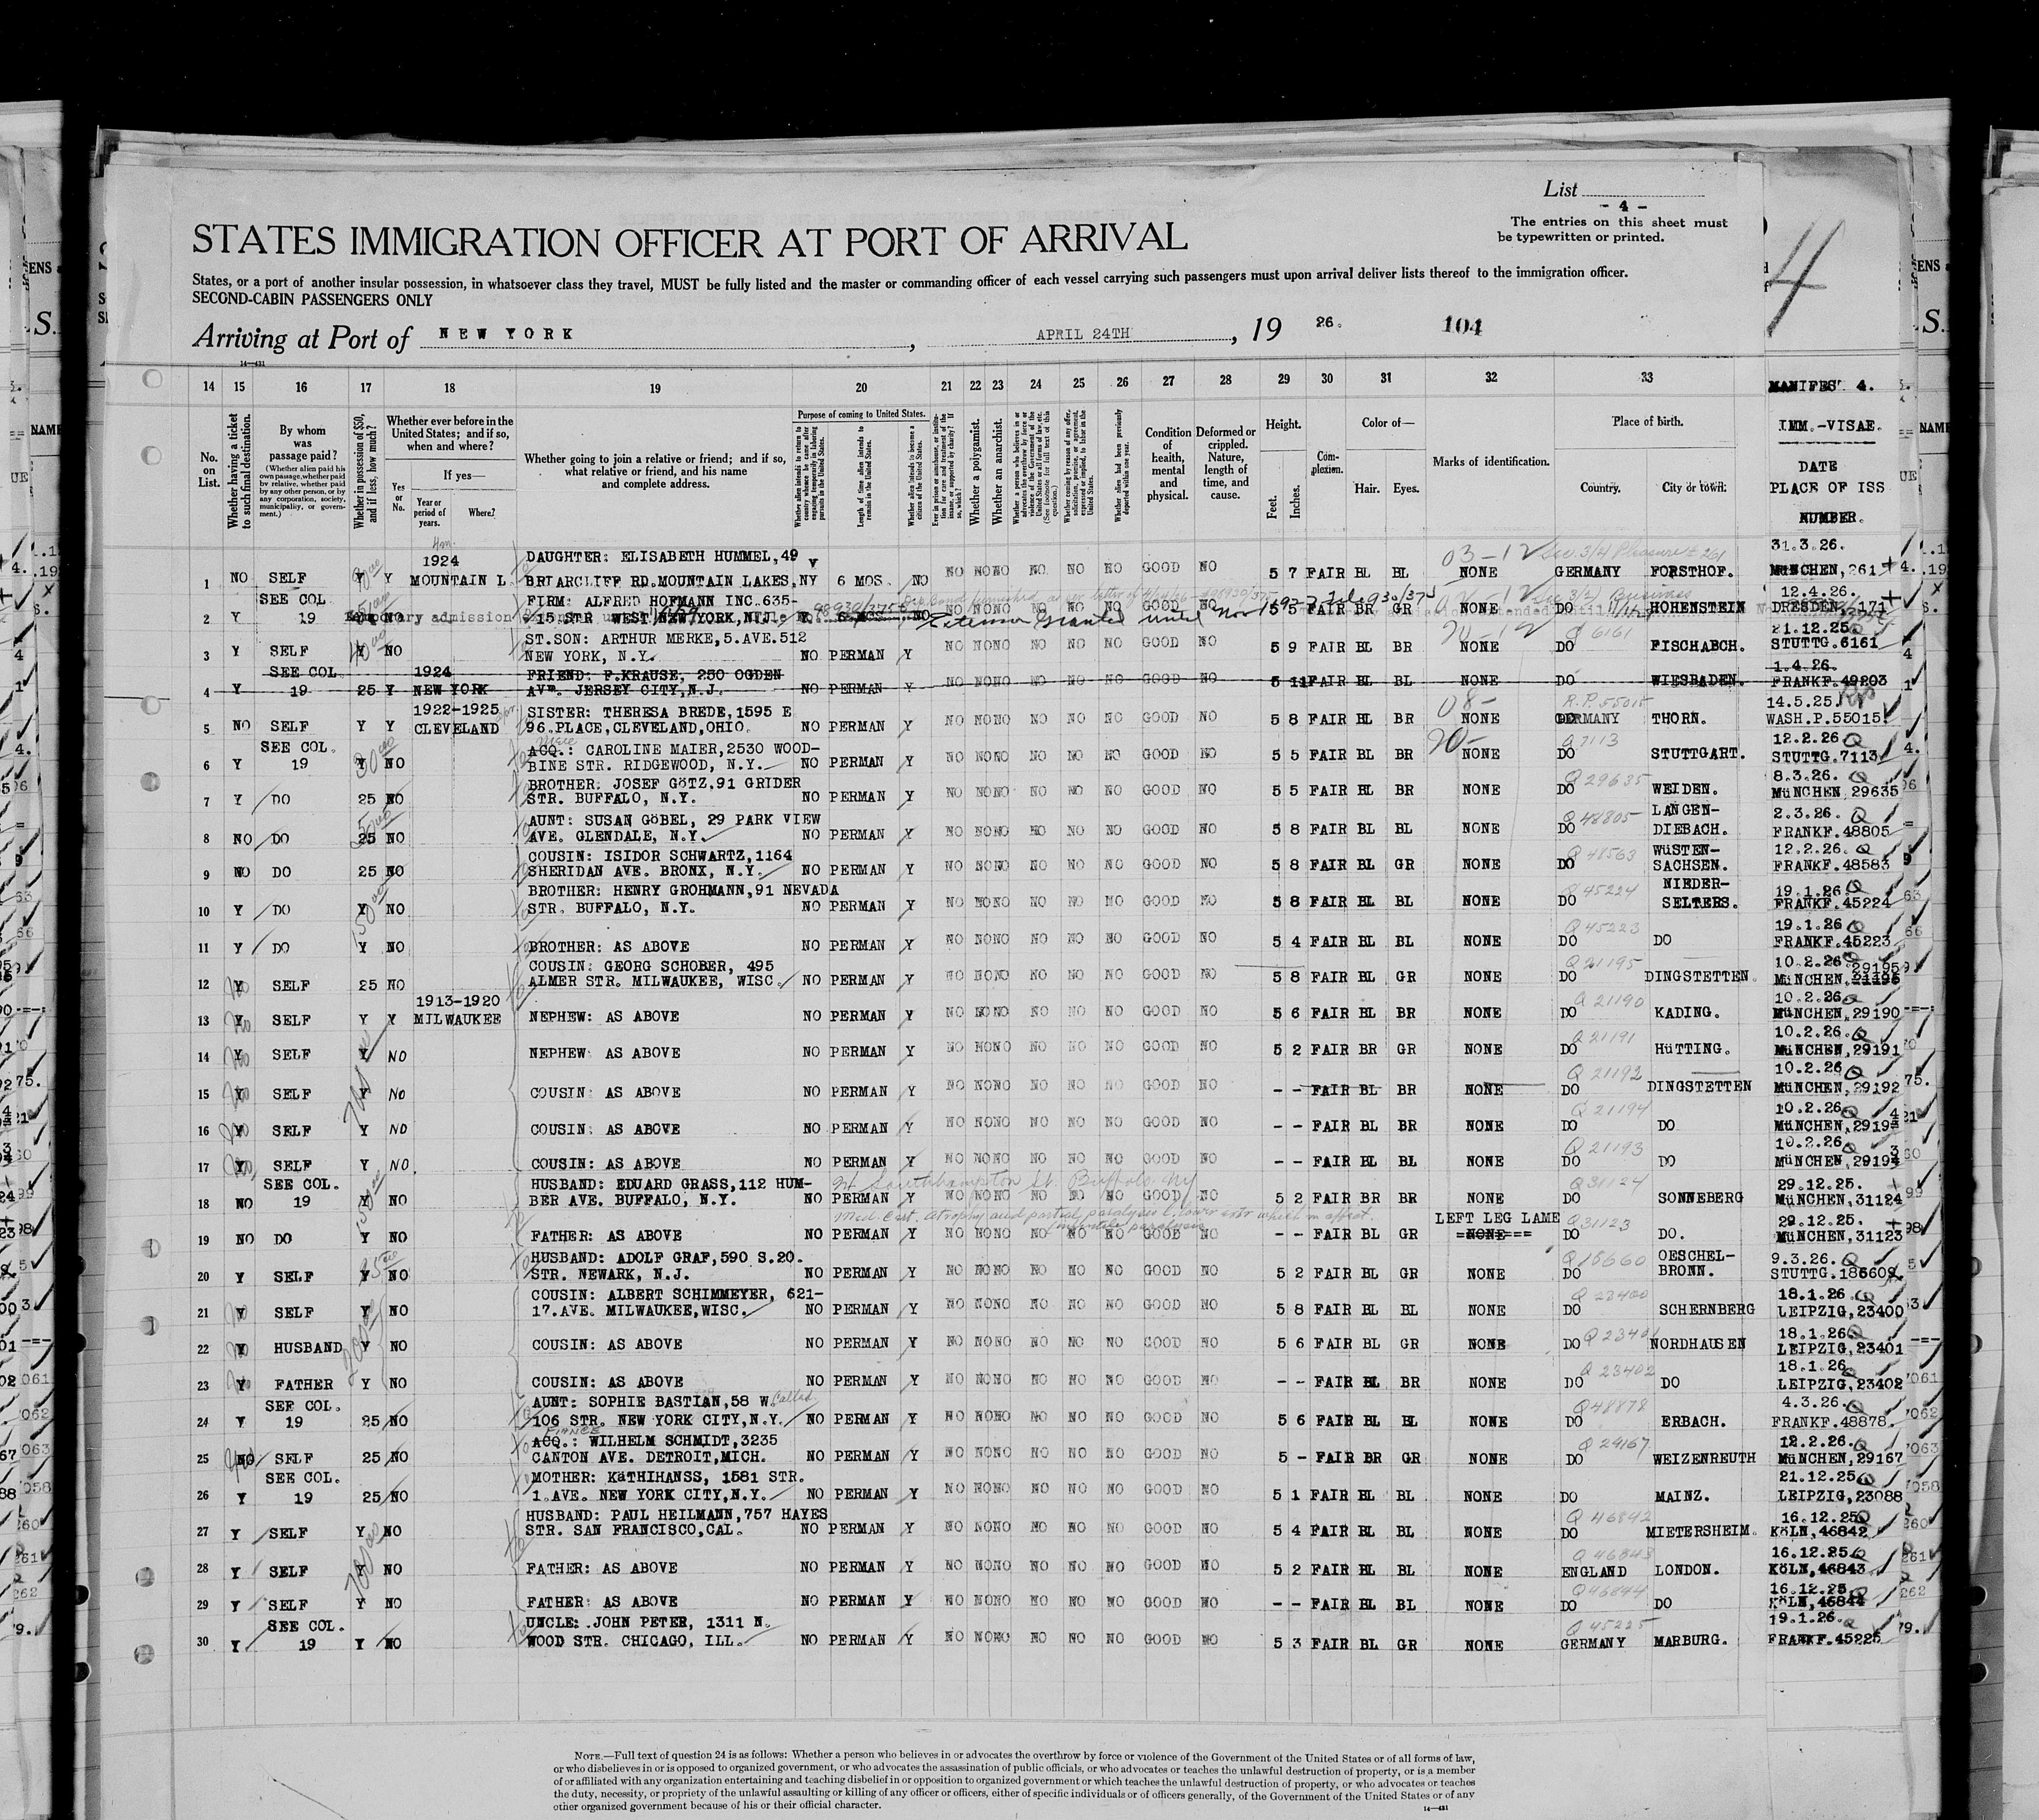 List
- 4 -
The entries on this sheet must
be typewritten or printed.
4
STATES IMMIGRATION OFFICER AT PORT OF ARRIVAL
States, or a port of another insular possession, in whatsoever class they travel, MUST be fully listed and the master or commanding officer of each vessel carrying such passengers must upon arrival deliver lists thereof to the immigration officer.
SECOND-CABIN PASSENGERS ONLY
Arriving at Port of NEW YORK, APRIL 24TH, 19 26. 104
14 15 16 17 18 19 20 21 22 23 24 25 26 27 28 29 30 31 32 33 MANIFEST 4.
No. on List.
Whether having a ticket to such final destination.
By whom was passage paid?
(Whether alien paid his own passage, whether paid by relative, whether paid by any other person, or by any corporation, society, municipality, or government.)
Whether in possession of $50, and if less, how much?
Whether ever before in the United States; and if so, when and where?
Yes or No.
If yes—
Year or period of years.
Where?
Whether going to join a relative or friend; and if so, what relative or friend, and his name and complete address.
Purpose of coming to United States.
Length of time alien intends to remain in the United States.
Whether alien intends to become a citizen of the United States.
Whether a polygamist.
Whether an anarchist.
Condition of health, mental and physical.
Deformed or crippled. Nature, length of time, and cause.
Height.
Feet.
Inches.
Complexion.
Color of—
Hair.
Eyes.
Marks of identification.
Place of birth.
Country.
City or town.
IMM.-VISAE.
DATE
PLACE OF ISS
NUMBER.
1924 DAUGHTER: ELISABETH HUMMEL,49 Y 31.3.26.
1 NO SELF Y Y MOUNTAIN L BRIARCLIFF RD.MOUNTAIN LAKES,NY 6 MOS. NO NO NO NO NO NO NO GOOD NO 5 7 FAIR BL BL NONE GERMANY FORSTHOF. MüNCHEN,261
SEE COL FIRM: ALFRED HOFMANN INC.635- 12.4.26.
2 Y 19 NO 15 STR WEST NEW YORK,N.J. 6 MOS. NO Extension granted until Nov 5 5 FAIR BR GR NONE DO HOHENSTEIN DRESDEN,171
ST.SON: ARTHUR MERKE,5.AVE.512 21.12.25.
3 Y SELF Y NO NEW YORK, N.Y. NO PERMAN Y NO NO NO NO NO NO GOOD NO 5 9 FAIR BL BR NONE DO FISCHABCH. STUTTG.6161
SEE COL 1924 FRIEND: F.KRAUSE, 250 OGDEN 1.4.26.
4 Y 19 25 Y NEW YORK AVE. JERSEY CITY,N.J. NO PERMAN Y NO NO NO NO NO NO GOOD NO 5 11 FAIR BL BL NONE DO WIESBADEN. FRANKF.49203
1922-1925 SISTER: THERESA BREDE,1595 E R.P.55015 14.5.25.
5 NO SELF Y Y CLEVELAND 96.PLACE,CLEVELAND,OHIO. NO PERMAN Y NO NO NO NO NO NO GOOD NO 5 8 FAIR BL BR NONE GERMANY THORN. WASH.P.55015
SEE COL. ACQ.: CAROLINE MAIER,2530 WOOD- Q 7113 12.2.26.
6 Y 19 Y NO BINE STR. RIDGEWOOD, N.Y. NO PERMAN Y NO NO NO NO NO NO GOOD NO 5 5 FAIR BL BR NONE DO STUTTGART. STUTTG.7113
BROTHER: JOSEF GöTZ,91 GRIDER Q 29635 8.3.26.
7 Y DO 25 NO STR. BUFFALO, N.Y. NO PERMAN Y NO NO NO NO NO NO GOOD NO 5 5 FAIR BL BR NONE DO WEIDEN. MüNCHEN,29635
AUNT: SUSAN GöBEL, 29 PARK VIEW Q 48805 LANGEN- 2.3.26.
8 NO DO 25 NO AVE. GLENDALE, N.Y. NO PERMAN Y NO NO NO NO NO NO GOOD NO 5 8 FAIR BL BL NONE DO DIEBACH. FRANKF.48805
COUSIN: ISIDOR SCHWARTZ,1164 WüSTEN- 12.2.26.
9 NO DO 25 NO SHERIDAN AVE. BRONX, N.Y. NO PERMAN Y NO NO NO NO NO NO GOOD NO 5 8 FAIR BL GR NONE DO SACHSEN. FRANKF.48583
BROTHER: HENRY GROHMANN,91 NEVADA Q 45224 NIEDER- 19.1.26
10 Y DO Y NO STR. BUFFALO, N.Y. NO PERMAN Y NO NO NO NO NO NO GOOD NO 5 8 FAIR BL BL NONE DO SELTERS. FRANKF.45224
Q 45223 19.1.26
11 Y DO Y NO BROTHER: AS ABOVE NO PERMAN Y NO NO NO NO NO NO GOOD NO 5 4 FAIR BL BL NONE DO DO FRANKF.45223
COUSIN: GEORG SCHOBER, 495 Q 21195 10.2.26. 29195
12 Y SELF 25 NO ALMER STR. MILWAUKEE, WISC. NO PERMAN Y NO NO NO NO NO NO GOOD NO 5 8 FAIR BL GR NONE DO DINGSTETTEN. MüNCHEN,21195
1913-1920 Q 21190 10.2.26
13 Y SELF Y Y MILWAUKEE NEPHEW: AS ABOVE NO PERMAN Y NO NO NO NO NO NO GOOD NO 5 6 FAIR BL BR NONE DO KADING. MüNCHEN,29190
Q 21191 10.2.26.
14 Y SELF Y NO NEPHEW: AS ABOVE NO PERMAN Y NO NO NO NO NO NO GOOD NO 5 2 FAIR BR GR NONE DO HüTTING. MüNCHEN,29191
Q 21192 10.2.26.
15 Y SELF Y NO COUSIN: AS ABOVE NO PERMAN Y NO NO NO NO NO NO GOOD NO - - FAIR BL BR NONE DO DINGSTETTEN MüNCHEN,29192
Q 21194 10.2.26
16 Y SELF Y NO COUSIN: AS ABOVE NO PERMAN Y NO NO NO NO NO NO GOOD NO - - FAIR BL BR NONE DO DO MüNCHEN,2919
Q 21193 10.2.26.
17 Y SELF Y NO. COUSIN: AS ABOVE NO PERMAN Y NO NO NO NO NO NO GOOD NO - - FAIR BL BL NONE DO DO MüNCHEN,2919
SEE COL. HUSBAND: EDUARD GRASS,112 HUM- Southhampton St. Buffalo NY Q 31124 29.12.25.
18 NO 19 Y NO BER AVE. BUFFALO, N.Y. NO PERMAN Y NO NO NO NO NO NO GOOD NO 5 2 FAIR BR BR NONE DO SONNEBERG MüNCHEN,31124
Med. Cert. atrophy and partial paralysis L. lower extr which m affect. LEFT LEG LAME Q 31123 29.12.25.
19 NO DO Y NO FATHER: AS ABOVE NO PERMAN Y NO NO NO NO NO NO GOOD NO - - FAIR BL GR =NONE=== DO DO. MüNCHEN,31123
infantile paralysis
HUSBAND: ADOLF GRAF,590 S.20. Q 18660 OESCHEL- 9.3.26.
20 Y SELF Y NO STR. NEWARK, N.J. NO PERMAN Y NO NO NO NO NO NO GOOD NO 5 2 FAIR BL GR NONE DO BRONN. STUTTG.18660
COUSIN: ALBERT SCHIMMEYER, 621- Q 23400 18.1.26.
21 Y SELF Y NO 17.AVE. MILWAUKEE,WISC. NO PERMAN Y NO NO NO NO NO NO GOOD NO 5 8 FAIR BL BL NONE DO SCHERNBERG LEIPZIG,23400
Q 23401 18.1.26
22 Y HUSBAND Y NO COUSIN: AS ABOVE NO PERMAN Y NO NO NO NO NO NO GOOD NO 5 6 FAIR BL GR NONE DO NORDHAUSEN LEIPZIG,23401
Q 23402 18.1.26
23 Y FATHER Y NO COUSIN: AS ABOVE NO PERMAN Y NO NO NO NO NO NO GOOD NO - - FAIR BL BR NONE DO DO LEIPZIG,23402
SEE COL. AUNT: SOPHIE BASTIAN,58 W. Q 48878 4.3.26.
24 Y 19 25 NO 106 STR. NEW YORK CITY,N.Y. NO PERMAN Y NO NO NO NO NO NO GOOD NO 5 6 FAIR BL BL NONE DO ERBACH. FRANKF.48878.
FIANCE
ACQ.: WILHELM SCHMIDT,3235 Q 29167 12.2.26.
25 NO SELF 25 NO CANTON AVE. DETROIT,MICH. NO PERMAN Y NO NO NO NO NO NO GOOD NO 5 - FAIR BR GR NONE DO WEIZENREUTH MüNCHEN,29167
SEE COL. MOTHER: KäTHIHANSS, 1581 STR. 21.12.25
26 Y 19 25 NO 1.AVE. NEW YORK CITY,N.Y. NO PERMAN Y NO NO NO NO NO NO GOOD NO 5 1 FAIR BL BL NONE DO MAINZ. LEIPZIG,23088
HUSBAND: PAUL HEILMANN,757 HAYES Q 46842 16.12.25
27 Y SELF Y NO STR. SAN FRANCISCO,CAL. NO PERMAN Y NO NO NO NO NO NO GOOD NO 5 4 FAIR BL BL NONE DO MIETERSHEIM. KöLN,46842
Q 46843 16.12.25
28 Y SELF Y NO FATHER: AS ABOVE NO PERMAN Y NO NO NO NO NO NO GOOD NO 5 2 FAIR BL BL NONE ENGLAND LONDON. KöLN,46843
Q 46844 16.12.25
29 Y SELF Y NO FATHER: AS ABOVE NO PERMAN Y NO NO NO NO NO NO GOOD NO - - FAIR BL BL NONE DO DO KöLN,46844
SEE COL. UNCLE: JOHN PETER, 1311 N. Q 45225 19.1.26.
30 Y 19 Y NO WOOD STR. CHICAGO, ILL. NO PERMAN Y NO NO NO NO NO NO GOOD NO 5 3 FAIR BL GR NONE GERMANY MARBURG. FRANKF.45225
NOTE.—Full text of question 24 is as follows: Whether a person who believes in or advocates the overthrow by force or violence of the Government of the United States or of all forms of law,
or who disbelieves in or is opposed to organized government, or who advocates the assassination of public officials, or who advocates or teaches the unlawful destruction of property, or is a member
of or affiliated with any organization entertaining and teaching disbelief in or opposition to organized government or which teaches the unlawful destruction of property, or who advocates or teaches
the duty, necessity, or propriety of the unlawful assaulting or killing of any officer or officers, either of specific individuals or of officers generally, of the Government of the United States or of any
other organized government because of his or their official character.
14—431